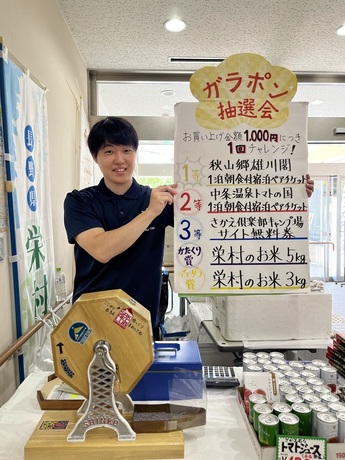 ガラポン
抽選会
お買い上げ金額1,000円につき
1回チャレンジ!
1等
秋山郷雄川閣
1泊朝食付宿泊ペアチケット
2等
中条温泉トマトの国
1泊朝食付宿泊ペアチケット
3等
さかえ倶楽部キャンプ場
サイト無料券
かたくり賞
栄村のお米5kg
栄村のお米3kg
長野県
栄村
SHINKO
トマトジュース